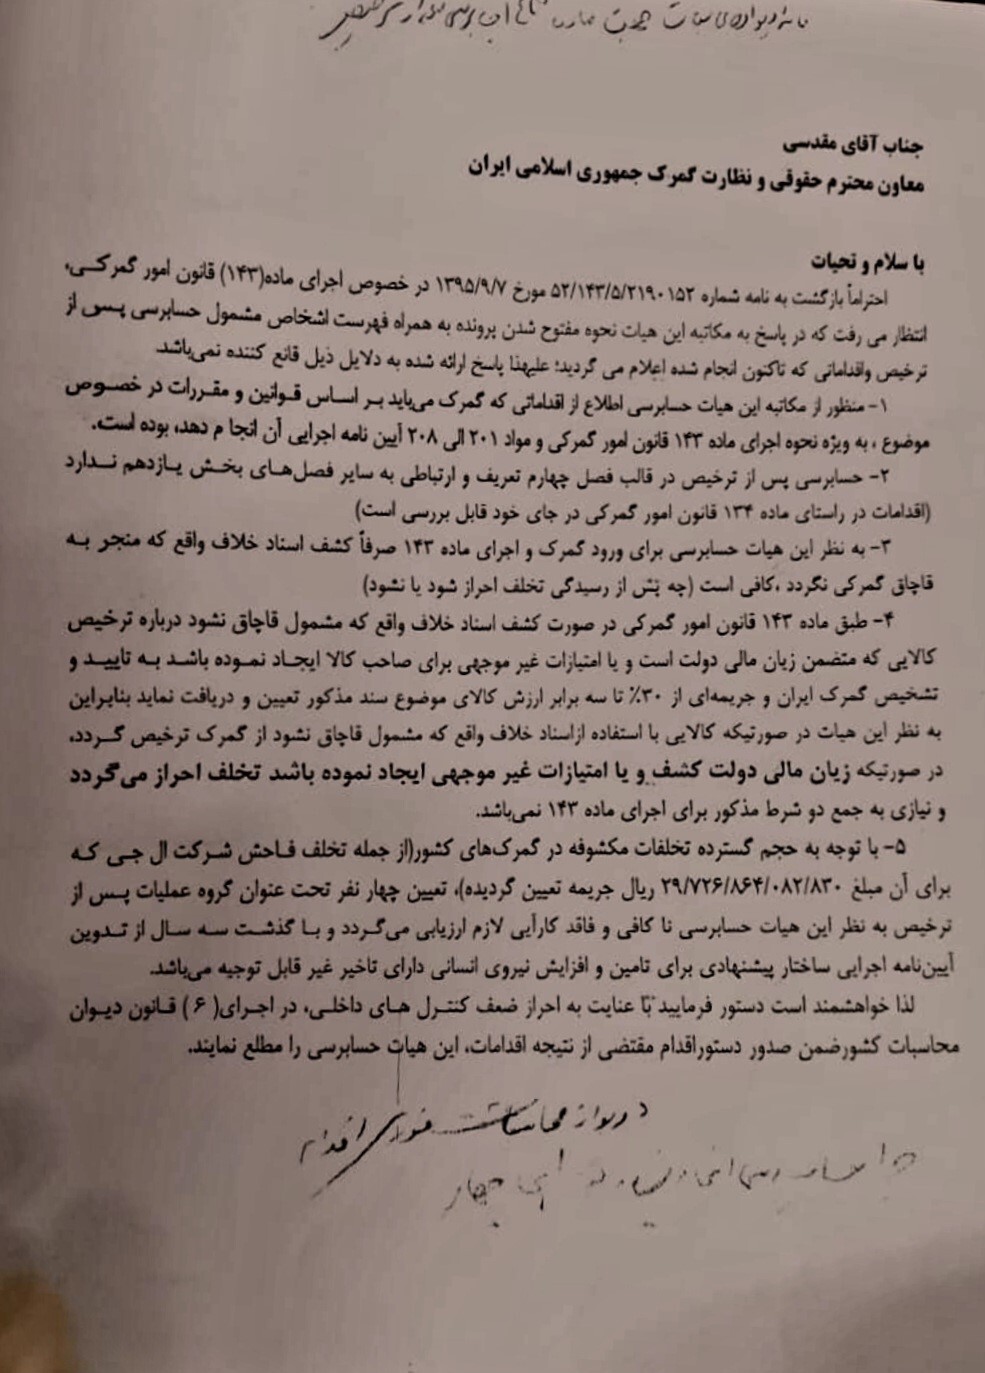 نامه دیوان محاسبات
جناب آقای مقدسی
معاون محترم حقوقی و نظارت گمرک جمهوری اسلامی ایران
با سلام و تحیات
احتراماً بازگشت به نامه شماره ۵۲/۱۴۳/۵/۲۱۹۰۱۵۲ مورخ ۱۳۹۵/۹/۷ در خصوص اجرای ماده(۱۴۳) قانون امور گمرکی،
انتظار می رفت که در پاسخ به مکاتبه این هیات نحوه مفتوح شدن پرونده به همراه فهرست اشخاص مشمول حسابرسی پس از
ترخیص واقداماتی که تاکنون انجام شده اعلام می گردید؛ علیهذا پاسخ ارائه شده به دلایل ذیل قانع کننده نمی‌باشد.
۱- منظور از مکاتبه این هیات حسابرسی اطلاع از اقداماتی که گمرک می‌باید بر اساس قوانین و مقررات در خصوص
موضوع ، به ویژه نحوه اجرای ماده ۱۴۳ قانون امور گمرکی و مواد ۲۰۱ الی ۲۰۸ آیین نامه اجرایی آن انجا م دهد، بوده است.
۲- حسابرسی پس از ترخیص در قالب فصل چهارم تعریف و ارتباطی به سایر فصل‌های بخش یازدهم ندارد
(اقدامات در راستای ماده ۱۳۴ قانون امور گمرکی در جای خود قابل بررسی است)
۳- به نظر این هیات حسابرسی برای ورود گمرک و اجرای ماده ۱۴۳ صرفاً کشف اسناد خلاف واقع که منجر به
قاچاق گمرکی نگردد ،کافی است (چه پس از رسیدگی تخلف احراز شود یا نشود)
۴- طبق ماده ۱۴۳ قانون امور گمرکی در صورت کشف اسناد خلاف واقع که مشمول قاچاق نشود درباره ترخیص
کالایی که متضمن زیان مالی دولت است و یا امتیازات غیر موجهی برای صاحب کالا ایجاد نموده باشد به تایید و
تشخیص گمرک ایران و جریمه‌ای از ۳۰٪ تا سه برابر ارزش کالای موضوع سند مذکور تعیین و دریافت نماید بنابراین
به نظر این هیات در صورتیکه کالایی با استفاده ازاسناد خلاف واقع که مشمول قاچاق نشود از گمرک ترخیص گردد،
در صورتیکه زیان مالی دولت کشف و یا امتیازات غیر موجهی ایجاد نموده باشد تخلف احراز می‌گردد
و نیازی به جمع دو شرط مذکور برای اجرای ماده ۱۴۳ نمی‌باشد.
۵- با توجه به حجم گسترده تخلفات مکشوفه در گمرک‌های کشور(از جمله تخلف فاحش شرکت ال جی که
برای آن مبلغ ۲۹/۷۲۶/۸۶۴/۰۸۲/۸۳۰ ریال جریمه تعیین گردیده)، تعیین چهار نفر تحت عنوان گروه عملیات پس از
ترخیص به نظر این هیات حسابرسی نا کافی و فاقد کارآیی لازم ارزیابی می‌گردد و با گذشت سه سال از تدوین
آیین‌نامه اجرایی ساختار پیشنهادی برای تامین و افزایش نیروی انسانی دارای تاخیر غیر قابل توجیه می‌باشد.
لذا خواهشمند است دستور فرمایید با عنایت به احراز ضعف کنترل های داخلی، در اجرای( ۶ ) قانون دیوان
محاسبات کشورضمن صدور دستوراقدام مقتضی از نتیجه اقدامات، این هیات حسابرسی را مطلع نمایند.
اقدام